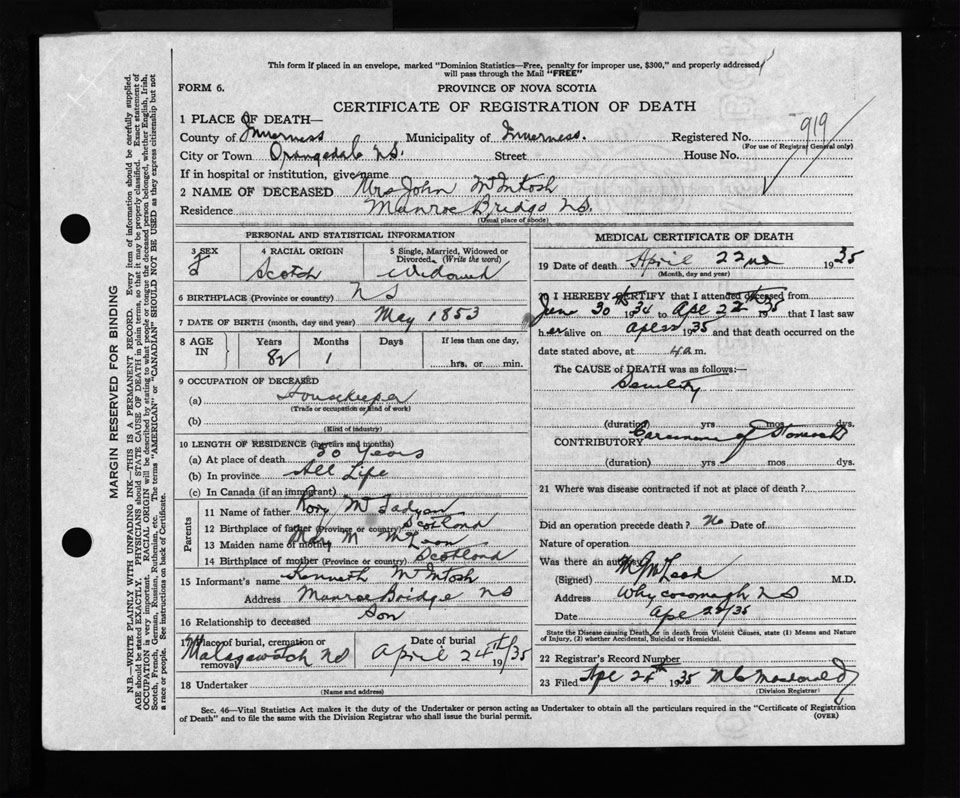 This form if placed in an envelope, marked "Dominion Statistics—Free, penalty for improper use, $300," and properly addressed
will pass through the Mail "FREE"
FORM 6.
PROVINCE OF NOVA SCOTIA
CERTIFICATE OF REGISTRATION OF DEATH
1 PLACE OF DEATH—
County of Inverness Municipality of Inverness. Registered No. 919
(For use of Registrar General only)
City or Town Orangedale N.S. Street House No.
If in hospital or institution, give name
2 NAME OF DECEASED Mrs John McIntosh
Residence Munroe Bridge N.S.
(Usual place of abode)
PERSONAL AND STATISTICAL INFORMATION
3 SEX 4 RACIAL ORIGIN 5 Single, Married, Widowed or Divorced. (Write the word)
F Scotch Widowed
6 BIRTHPLACE (Province or country) N S
7 DATE OF BIRTH (month, day and year) May 1853
8 AGE IN Years Months Days If less than one day,
82 1 hrs. or min.
9 OCCUPATION OF DECEASED
(a) Housekeeper
(Trade or occupation or kind of work)
(b)
(Kind of industry)
10 LENGTH OF RESIDENCE (in years and months)
(a) At place of death 50 Years
(b) In province All Life
(c) In Canada (if an immigrant)
Parents
11 Name of father Rory
12 Birthplace of father (Province or country) Scotland
13 Maiden name of mother M
14 Birthplace of mother (Province or country) Scotland
15 Informant's name Kenneth McIntosh
Address Munroe Bridge N S
16 Relationship to deceased Son
17 Place of burial, cremation or removal Date of burial
Malagawatch N S April 24th 1935
18 Undertaker
(Name and address)
MEDICAL CERTIFICATE OF DEATH
19 Date of death April 22nd 1935
(Month, day and year)
I HEREBY CERTIFY that I attended deceased from
June 30th 1934 to Apl 22nd 1935 that I last saw
her alive on Apl 22 1935 and that death occurred on the
date stated above, at 4 a.m.
The CAUSE of DEATH was as follows:—
Senility
(duration) yrs mos dys.
CONTRIBUTORY Carcinoma of Stomach
(duration) yrs mos. dys.
21 Where was disease contracted if not at place of death?
Did an operation precede death? No Date of
Nature of operation
Was there an autopsy
(Signed) McLeod M.D.
Address Whycocomagh N S
Date Apl 22/35
State the Disease causing Death, or in death from Violent Causes, state (1) Means and Nature
of Injury, (2) whether Accidental, Suicidal or Homicidal.
22 Registrar's Record Number
23 Filed Apl 24th 1935 Macdonald
(Division Registrar)
Sec. 46—Vital Statistics Act makes it the duty of the Undertaker or person acting as Undertaker to obtain all the particulars required in the "Certificate of Registration
of Death" and to file the same with the Division Registrar who shall issue the burial permit.
(OVER)
MARGIN RESERVED FOR BINDING
N.B.—WRITE PLAINLY WITH UNFADING INK—THIS IS A PERMANENT RECORD. Every item of information should be carefully supplied.
AGE should be stated EXACTLY. PHYSICIANS should STATE CAUSE OF DEATH in plain terms, so that it may be properly classified. Exact statement of
OCCUPATION is very important. RACIAL ORIGIN will be described by stating to what people or tongue the deceased person belonged, whether English, Irish,
Scotch, French, German, Russian, Ruthenian, etc. The terms "AMERICAN" or "CANADIAN" SHOULD NOT BE USED as they express citizenship but not
a race or people. See instructions on back of Certificate.